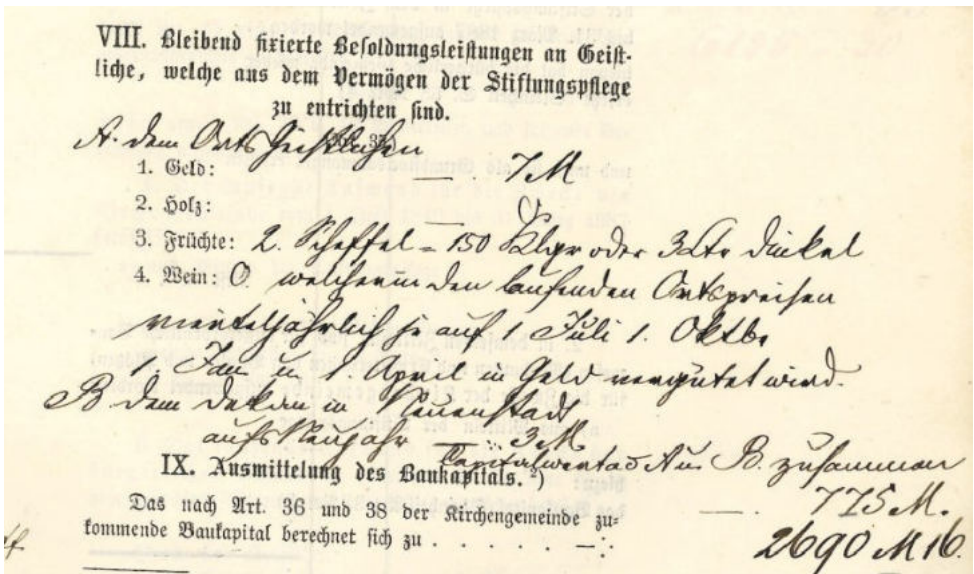 VIII. Bleibend fixierte Besoldungsleistungen an Geist-
liche, welche aus dem Vermögen der Stiftungspflege
zu entrichten sind.
A. dem Ortsgeistlichen
1. Geld: — 7 M
2. Holz: —
3. Früchte: 2. Scheffel = 150 Klgr oder 3 Ctr Dinkel
4. Wein: 0 welcher in den laufenden Ortspreisen
vierteljährlich je auf 1 Juli 1. Oktbr
1. Jan u. 1 April in Geld vergütet wird.
B dem Dekan in Neuenstadt
aufs Neujahr — 3 M
Capitalwert aus A u. B. zusammen
775 M.
IX. Ausmittelung des Baukapitals. ²)
Das nach Art. 36 und 38 der Kirchengemeinde zu-
kommende Baukapital berechnet sich zu . . . . . —: 2690 M 16.